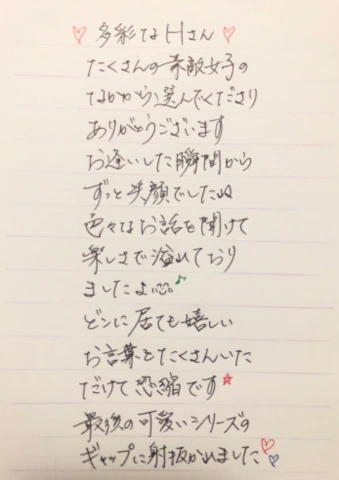 ♡ 多彩なHさん ♡
たくさんの素敵女子の
なかから選んでくださり
ありがとうございます
お逢いした瞬間から
ずっと笑顔でしたね
色々なお話を聞けて
楽しさで溢れており
ましたよ♪
どこに居ても嬉しい
お言葉をたくさんいた
だけて恐縮です☆
最後の可愛いシリーズの
ギャップに射抜かれました♡♡